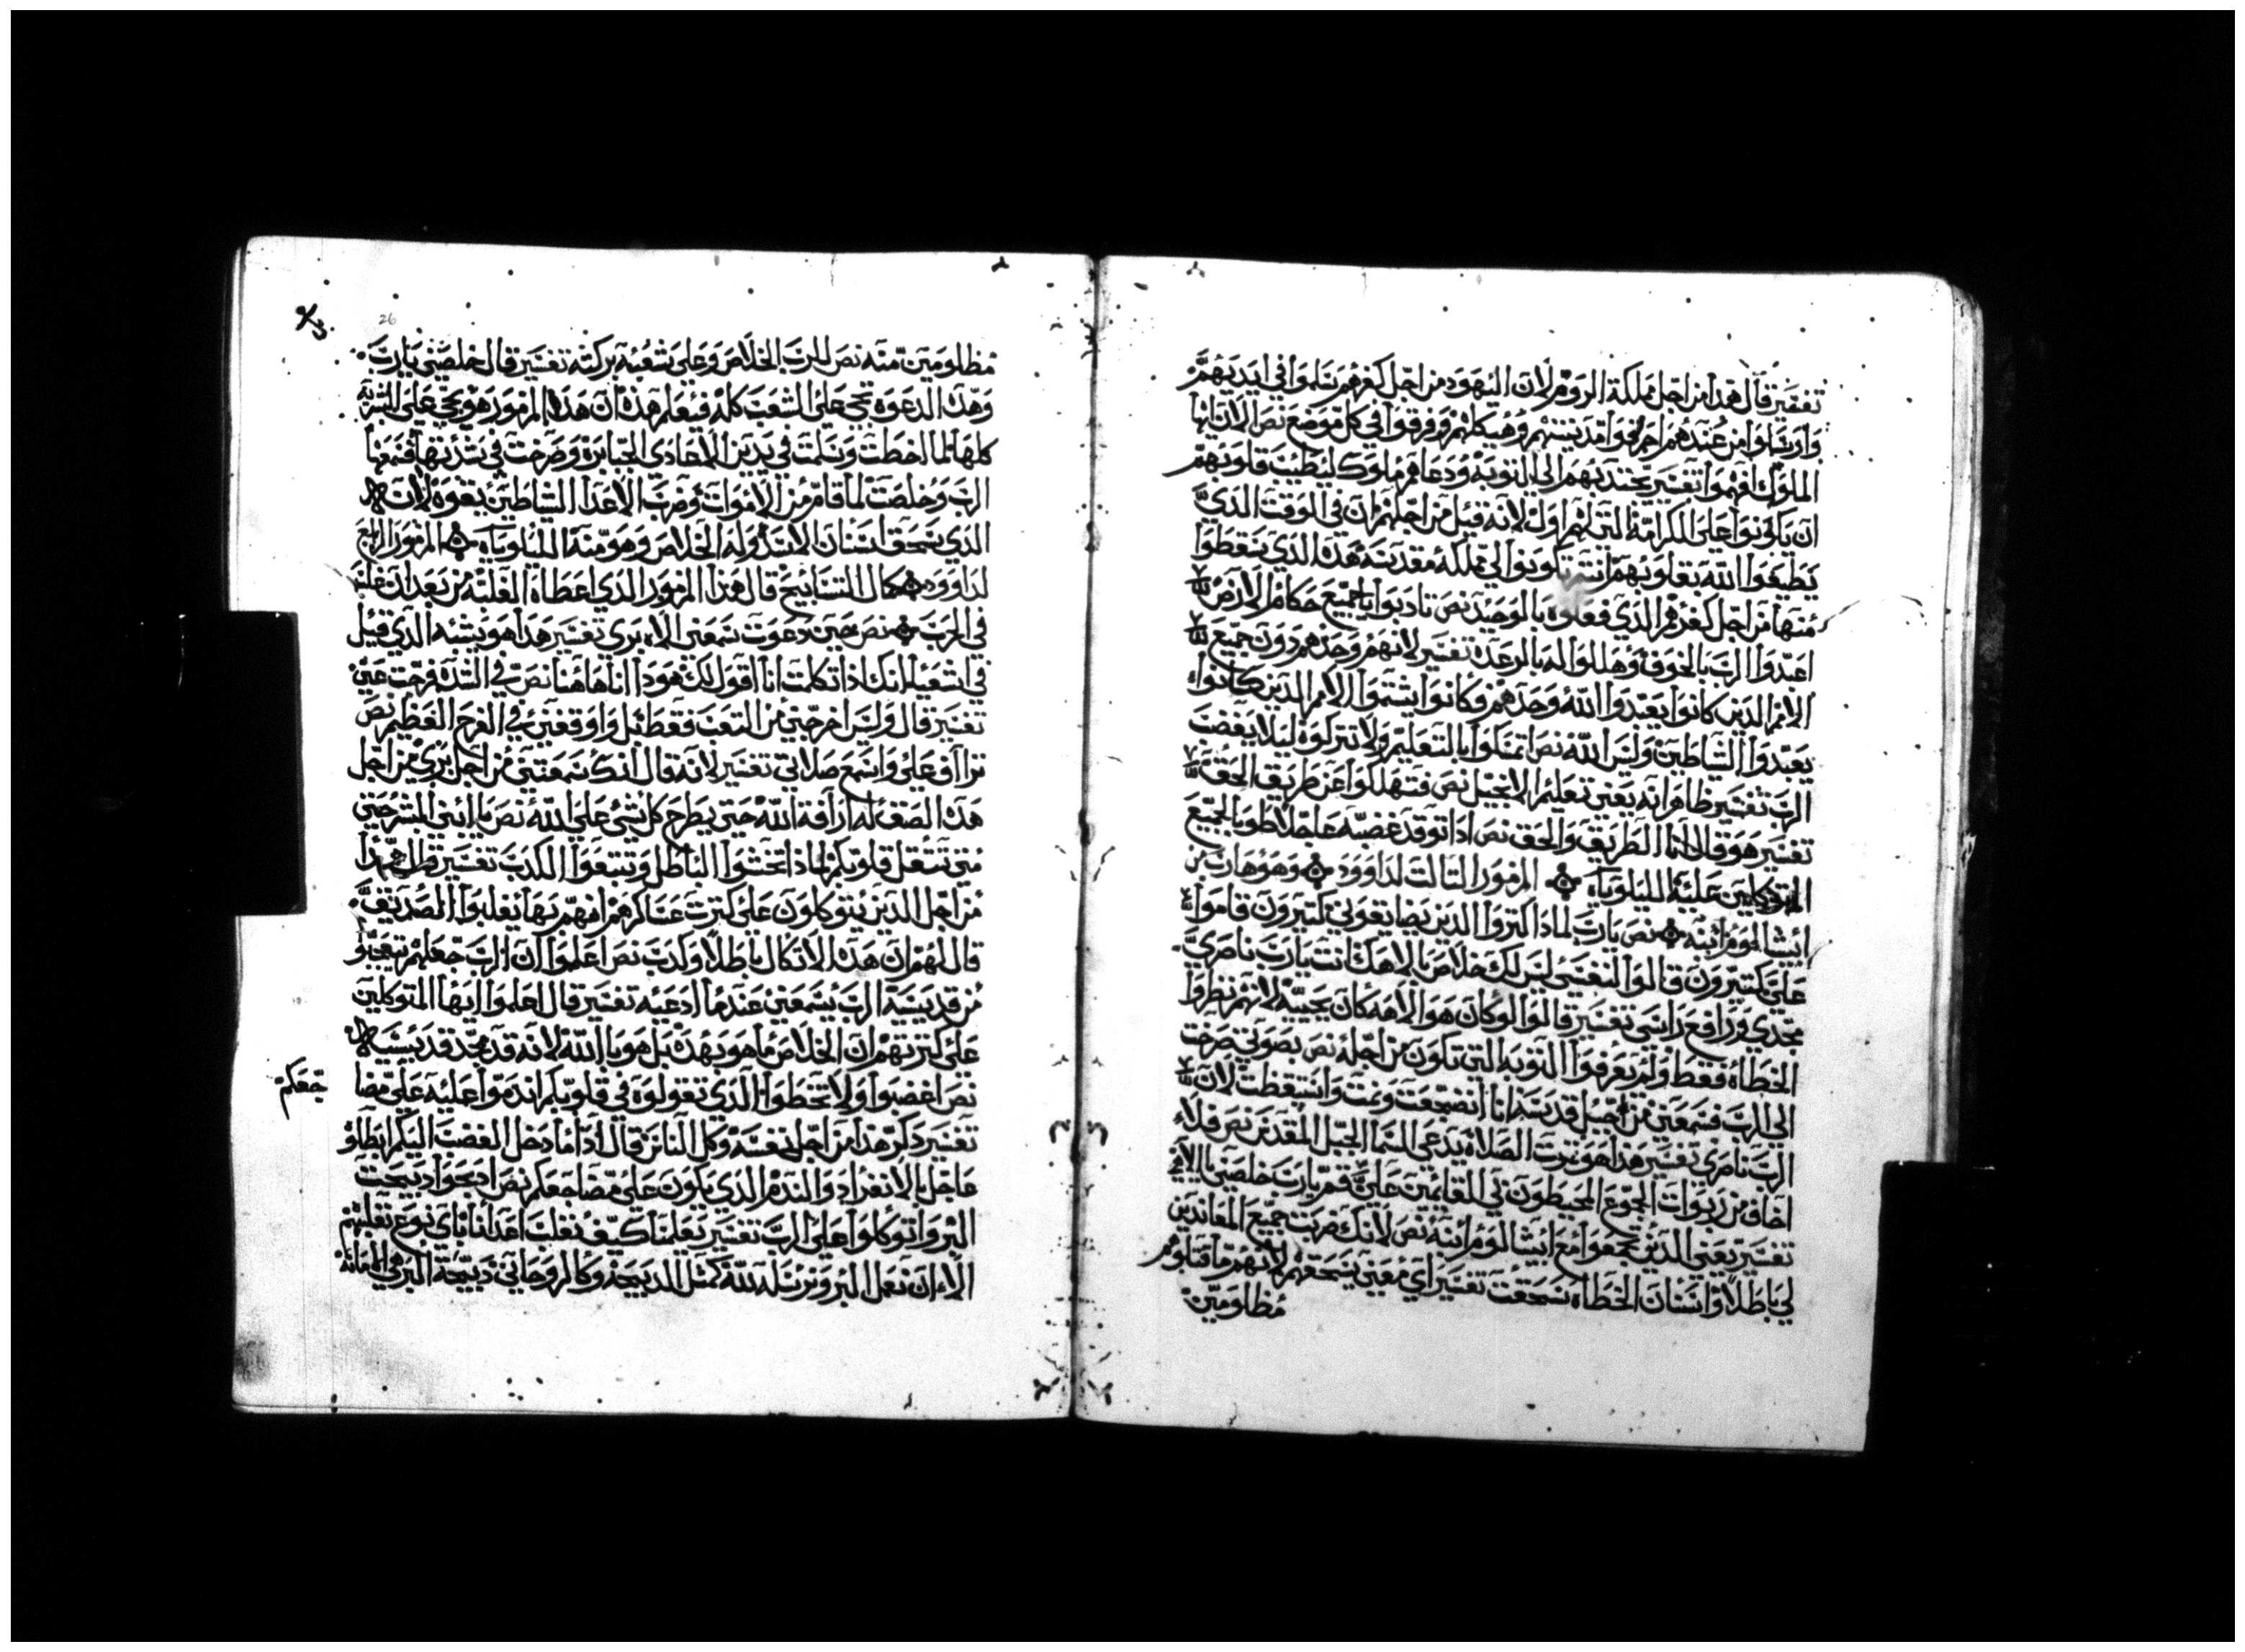 تفسير قال هدا من اجل مملكة الروم لان اليهود من اجل كفرهم سلموا في ايديهم
وارسلوا من عندهم احرقوا مدينتهم وهيكلهم وفرقوا في كل موضع نص الان ايها
الملوك افهموا تفسير يجتدبهم الي التوبة ودعاهم ملوك ليطيب قلوبهم
ان يكونوا علي الكرامة التي لهم اول لانه قيل من اجلهم ان في الوقت الدي
يطيعوا الله بقلوبهم انتم تكونوا الي مملكة مقدسة هده الدي سقطوا
منها من اجل كفرهم الدي فعلوه بالوحيد نص تادبوا ياجميع حكام الارض
اعبدوا الرب بالخوف وهللوا له بالرعدة تفسير لانهم وحدهم دون جميع
الامم الدين كانوا يعبدوا الله وحدهم وكانوا يشتموا الامم الدين كانوا
يعبدوا الشاطين وليس الله نص تمسكوا بالتعليم ولا تتركوه ليلا يغضب
الرب تفسير ظاهر انه يعني تعليم الانجيل نص فتهلكوا عن طريق الحق
تفسير هو قال انا الطريق والحق نص ادا توقد غضبه عاجلا طوبا لجميع
المتوكلين عليه الليلوياه المزمور التالت لداوود وهو هارب من
ابيشالوم ابنه نص يارب لمادا اكتروا الدين يضايقوني كتيرون قاموا
علي كتيرون قالوا لنفسي ليس لك خلاص بالاهك انت يارب ناصري
مجدي ورافع راسي تفسير قالوا لو كان هو الاهه كان يجيبه لانهم نظروا
الخطاه فقط ولم يعرفوا التوبه التي تكون من اجله نص بصوتي صرخت
الي الرب فسمعني من جبل قدسه انا انضجعت ونمت واستيقظت لان
الرب ناصري تفسير هدا هو ترتيب الصلاة يدعي السما الجبل المقدس نص فلا
اخاف من ربوات الجموع المحيطون بي القايمين علي قم يارب خلصني يا الاهي
تفسير يعني الدين تجمعوا مع ابيشالوم ابنه نص لانك ضربت جميع المعاندين
لي باطلا واسنان الخطاه سحقت تفسير اي معني يسحقهم لانهم ما قتلوهم
مظلومين
26
مظلومين منه نص للرب الخلاص وعلي شعبه بركته تفسير قال خلصني يارب
وهده الدعوة تجي علي الشعب كله فيعلم هده ان هدا المزمور هو يجي علي البشرية
كلها لما اخطت وسلمت في يدين الاعادي الجبابرة وصرخت في شدتها فسمعها
الرب وخلصت لما قام من الاموات وضرب الاعدا الشاطين بقوة لان
الدي يسحق اسنان الاسد وله الخلاص وهو منه الليلوياه المزمور الرابع
لداوود كمال التسابيح قال هدا المزمور الدي اعطاه الغلبة من بعد ان غلب
في الحرب نص حين دعوت سمعني الاه بري تفسير هدا هو يشبه الدي قيل
في اشعيا انك ادا تكلمت انا اقول لك هودا انا هاهنا نص في الشدة فرجت عني
تفسير قال وليس اخرجتني من التعب فقط بل واوقفني في الفرح العظيم نص
تراأف علي واسمع صلاتي تفسير لانه قال انك سمعتني من اجل بري من اجل
هده الصفه له ارافة الله حتي يطرح كل شي علي الله نص يا بني البشر حتي
متي تتقل قلوبكم لمادا تحبوا الباطل وتتبعوا الكدب تفسير قال هدا
من اجل الدين يتوكلون علي كترت عساكرهم انهم بها يغلبوا الصديق
قال لهم ان هدا الاتكال باطلا وكدب نص اعلموا ان الرب جعلهم يتعجبو
من قديسية الرب يسمعني عندما ادعيه تفسير قال اعلموا ايها المتوكلين
علي كترتهم ان الخلاص ما هو بهده بل هو بالله لانه قد مجد قديسيه
نص اغضبوا ولا تخطوا الدي تقولوه في قلوبكم اندموا عليه علي مضا
جعكم
تفسير دكر هدا من اجل نفسه وكل الناس قال ادا ما دخل الغضب اليكم ابطلو
عاجل بالانفراد والندم الدي يكون علي مضاجعكم نص ادبحوا دبيحت
البر واتوكلوا علي الرب تفسير يعلمنا كيف نغلب اعدانا باي نوع نغلبهم
الا ان نعمل البر ونرسله لله كمتل الدبيحة وكالروحاني دبيحة البر هي الامانة